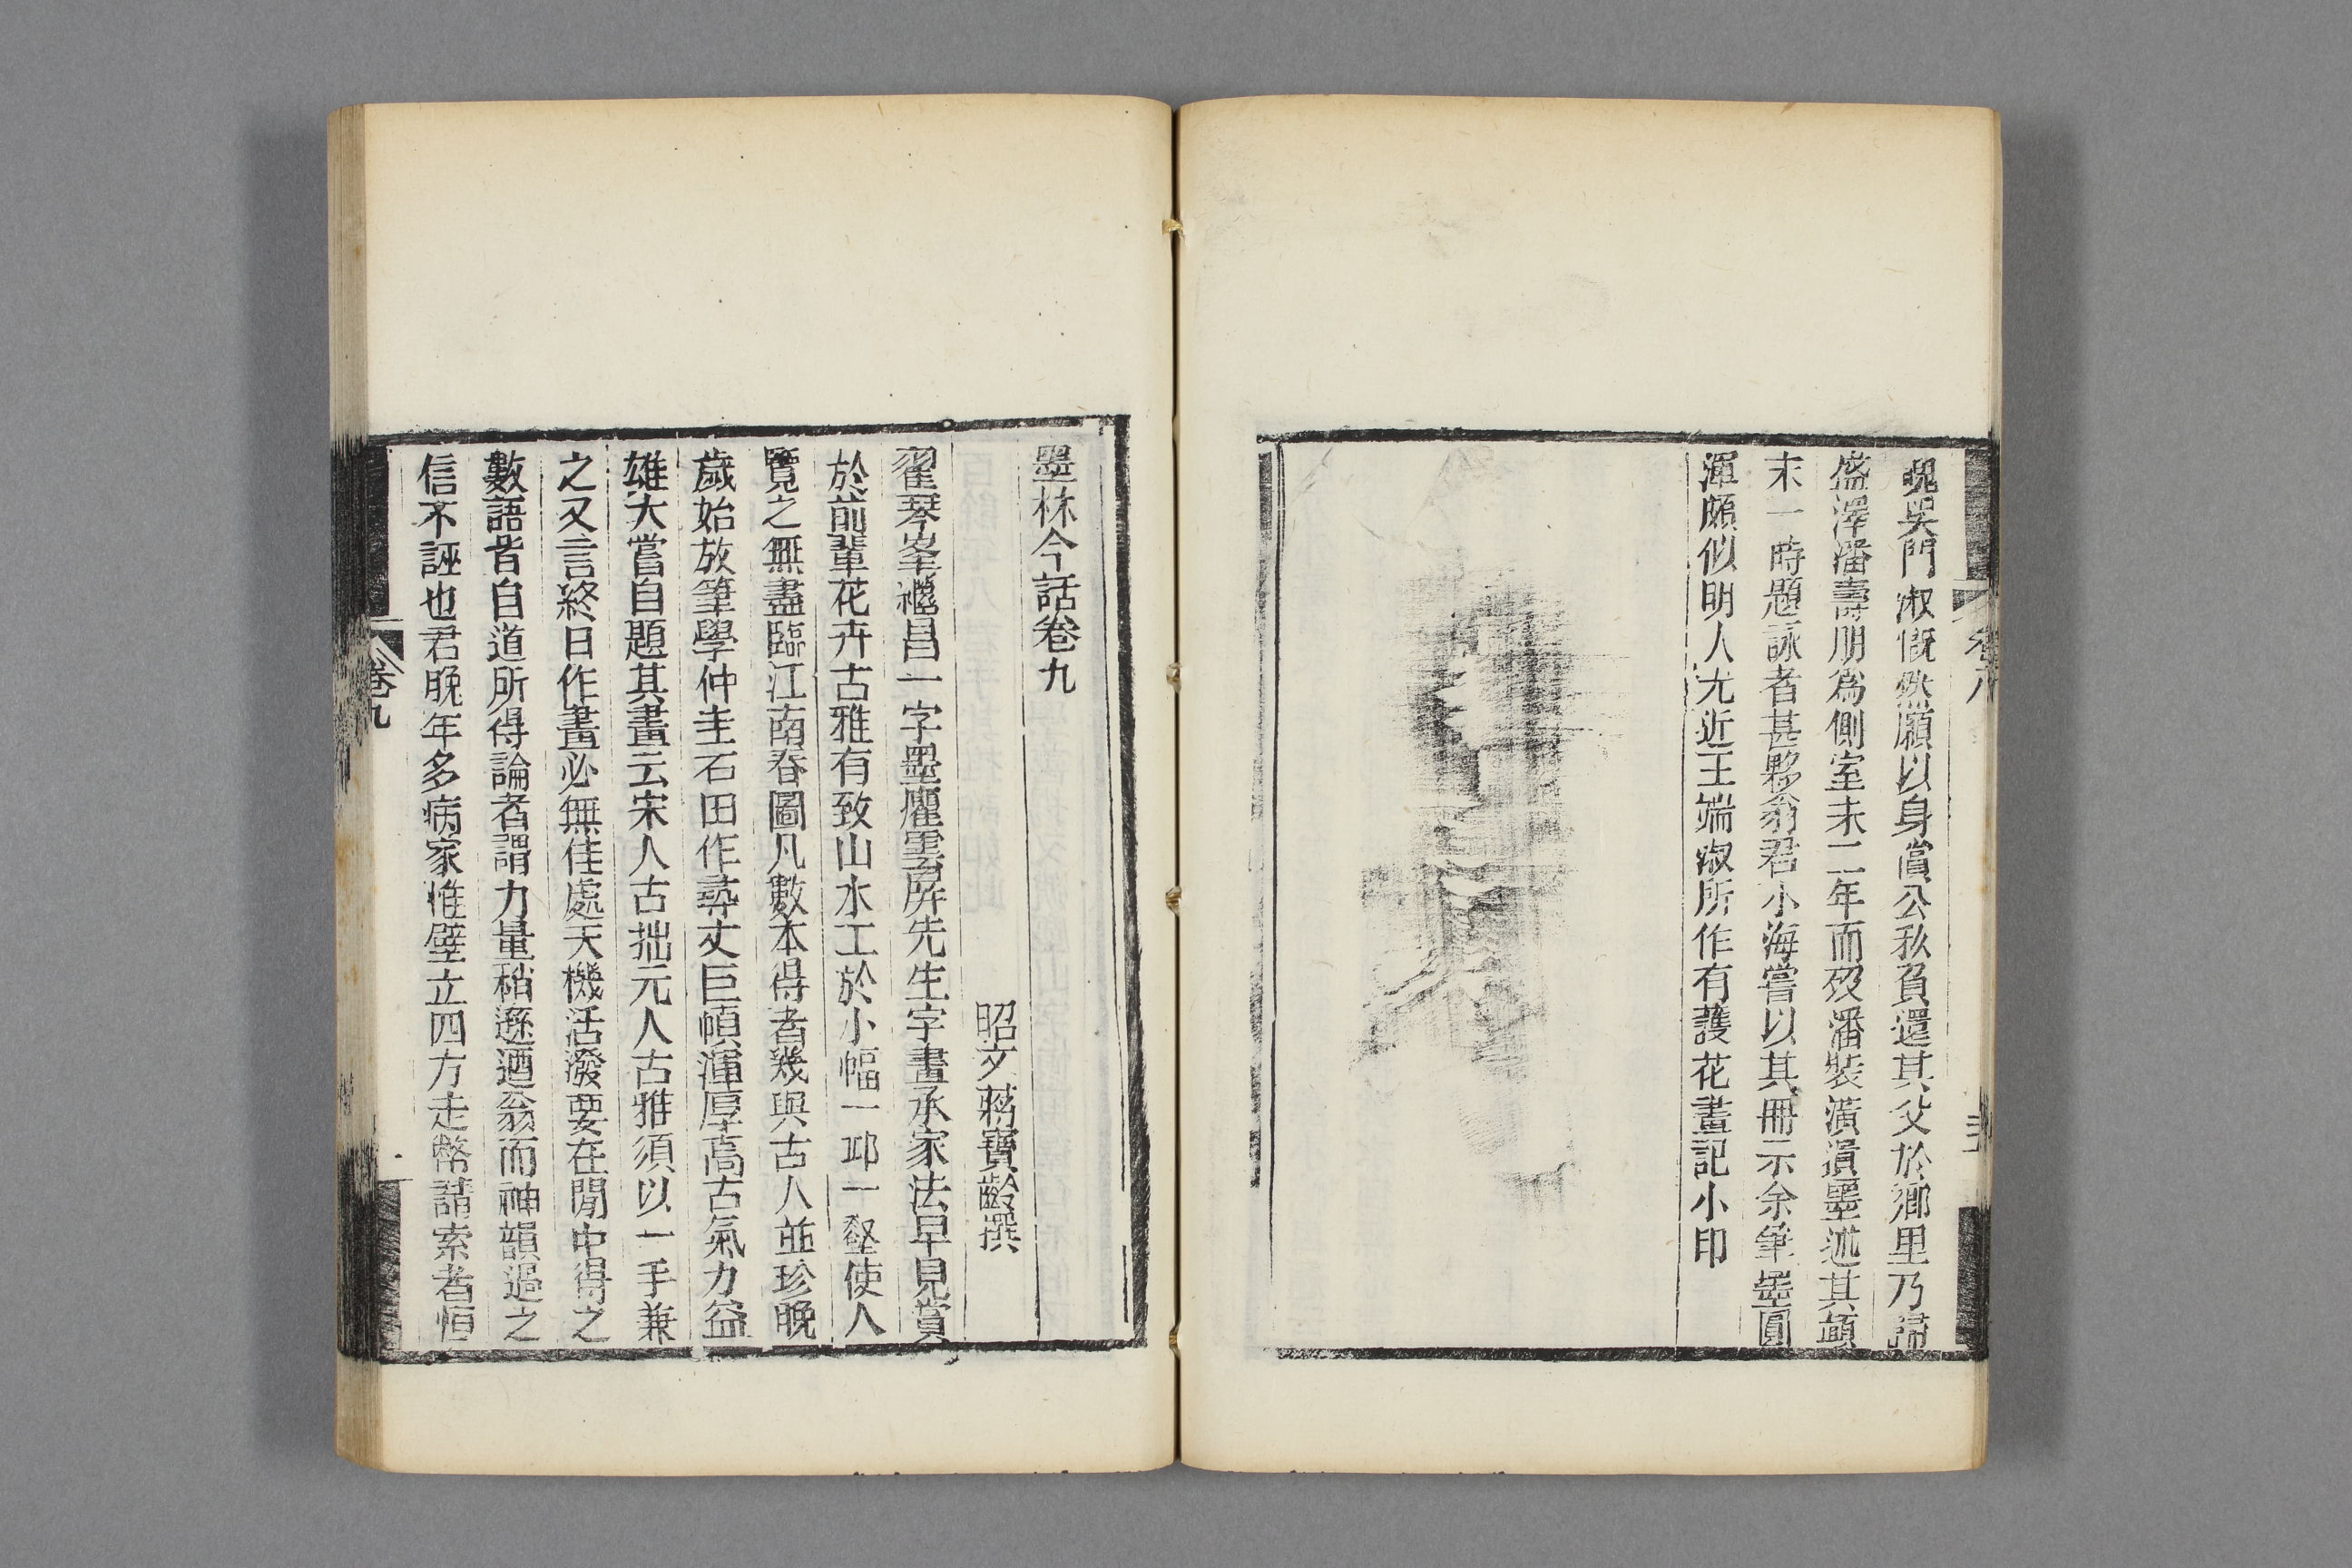 晚吳門淑慨然願以身當公私負還其父於鄉里乃歸
盛澤潘壽朋為側室未二年而歿潘裝潢遺墨述其顛
末一時題詠者甚夥翁君小海嘗以其冊示余筆墨圓
渾頗似明人尤近王端淑所作有護花畫記小印
卷八
墨林今話卷九
昭文蔣寶齡撰
翟琴峯繼昌一字墨癯雲屏先生字畫承家法早見賞
於前輩花卉古雅有致山水工於小幅一邱一壑使人
覽之無盡臨江南春圖凡數本得者幾與古人並珍晚
歲始放筆學仲圭石田作尋丈巨幀渾厚高古氣力益
雄大嘗自題其畫云宋人古拙元人古雅須以一手兼
之又言終日作畫必無佳處天機活潑要在閒中得之
數語皆自道所得論者謂力量稍遜迺翁而神韻過之
信不誣也君晚年多病家惟壁立四方走幣請索者恒
卷九
一